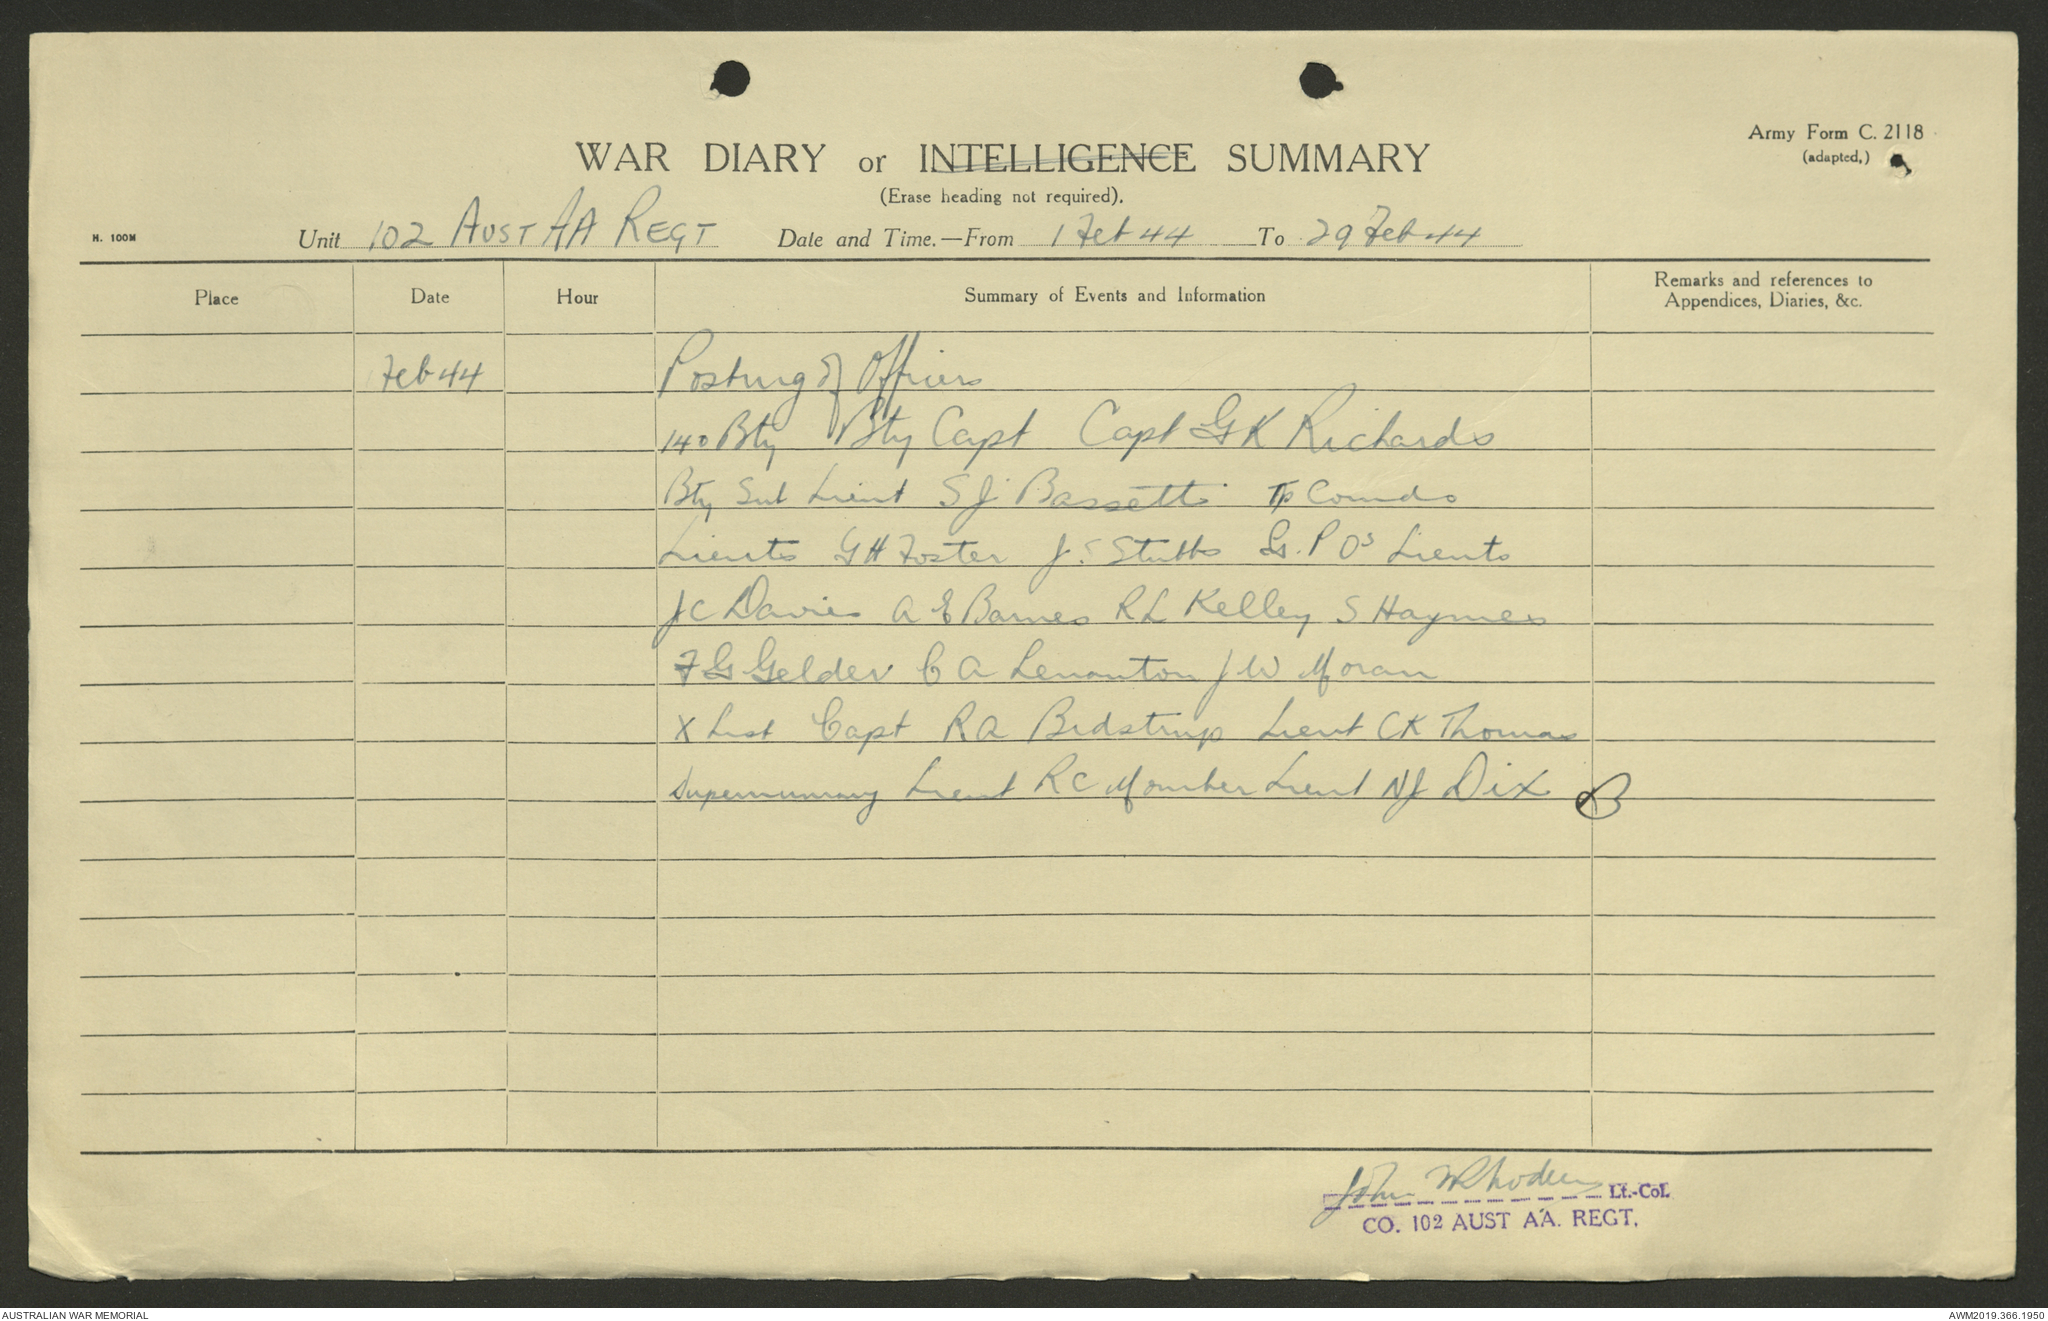 Army Form C. 2118
(adapted.)
WAR DIARY or INTELLIGENCE SUMMARY
(Erase heading not required).
H. 100M
Unit 102 AUST AA REGT Date and Time.—From 1 Feb 44 To 29 Feb 44
Place Date Hour Summary of Events and Information Remarks and references to
Appendices, Diaries, &c.
Feb 44 Posting of Officers
140 Bty Bty Capt Capt G K Richards
Bty Sub Lieut S J Bassett Tp Comds
Lieuts G H Foster J S Stubbs G.P Os Lieuts
J C Davies A E Barnes R L Kelley S Haymes
F G Gelder C A Lemonton J W Moran
X List Capt R A Bidstrup Lieut C K Thomas
Supernumary Lieut R C Lieut N J Dix
John W Rhoden Lt.-Col.
CO. 102 AUST A.A. REGT.
AUSTRALIAN WAR MEMORIAL AWM2019.366.1950